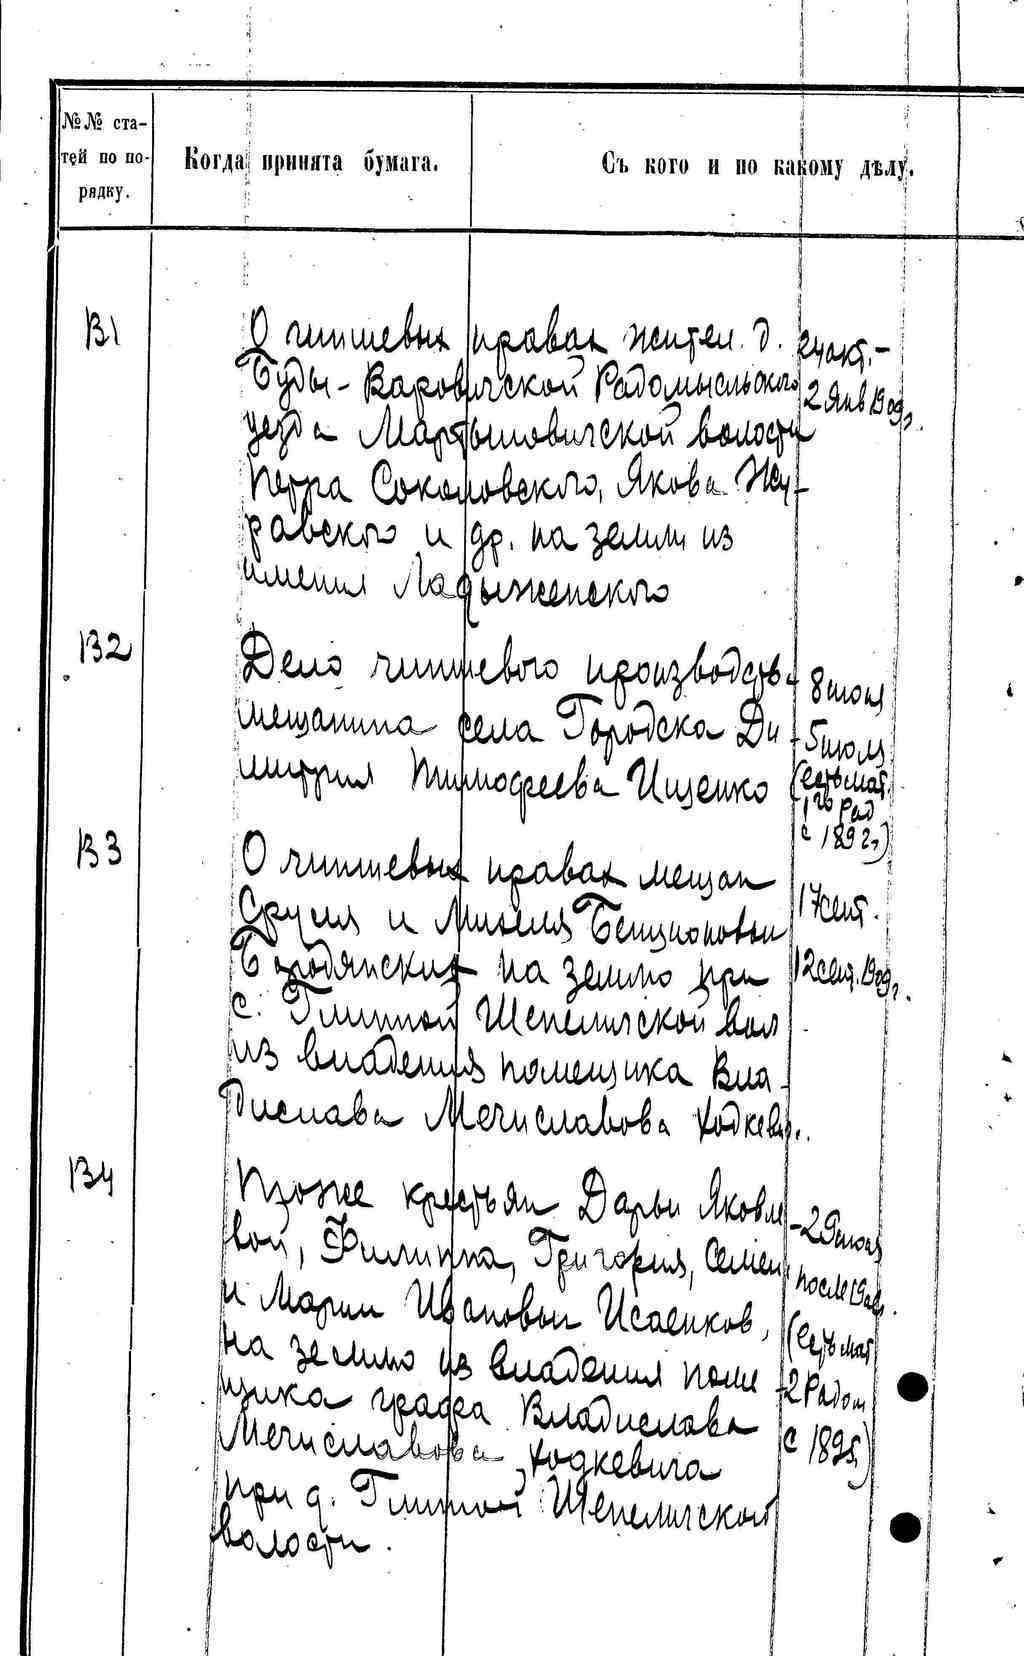 №№ ста-
тей по по-
рядку.
Когда принята бумага.
Съ кого и по какому дѣлу.
131
О чиншевых правах жител. д.
Буды-Варовичской Радомысльского
уезда Мартыновичской волости
Петра Соколовского, Якова Жу-
равского и др. на земли из
имения Ладыженского
24 окт.-
2 янв 1909г.
132
Дело чиншевого производства
мещанина села Городска Ди
митрия Тимофеева Ищенко
8 июня
-5 июля
(есть мат.
1го Рад
с 1892г)
133
О чиншевых правах мещан
Сруля и Михеля Бенционовы
Бородянских на землю при
с. Глинной Шепеличской вол
из владения помещика Вла-
дислава Мечиславова Ходкевич.
17 сент.
12 сент. 1909г.
134
крестьян Дарьи Яковле
вой, Филиппа, Григория, Семен
и Марии Ивановы Исаенков,
на землю из владения поме
щика графа Владислава
Мечиславова Ходкевича
при д. Глинной Шепеличской
волости.
-29 июня
после 19
(есть мат
-2 Радом
с 1895)